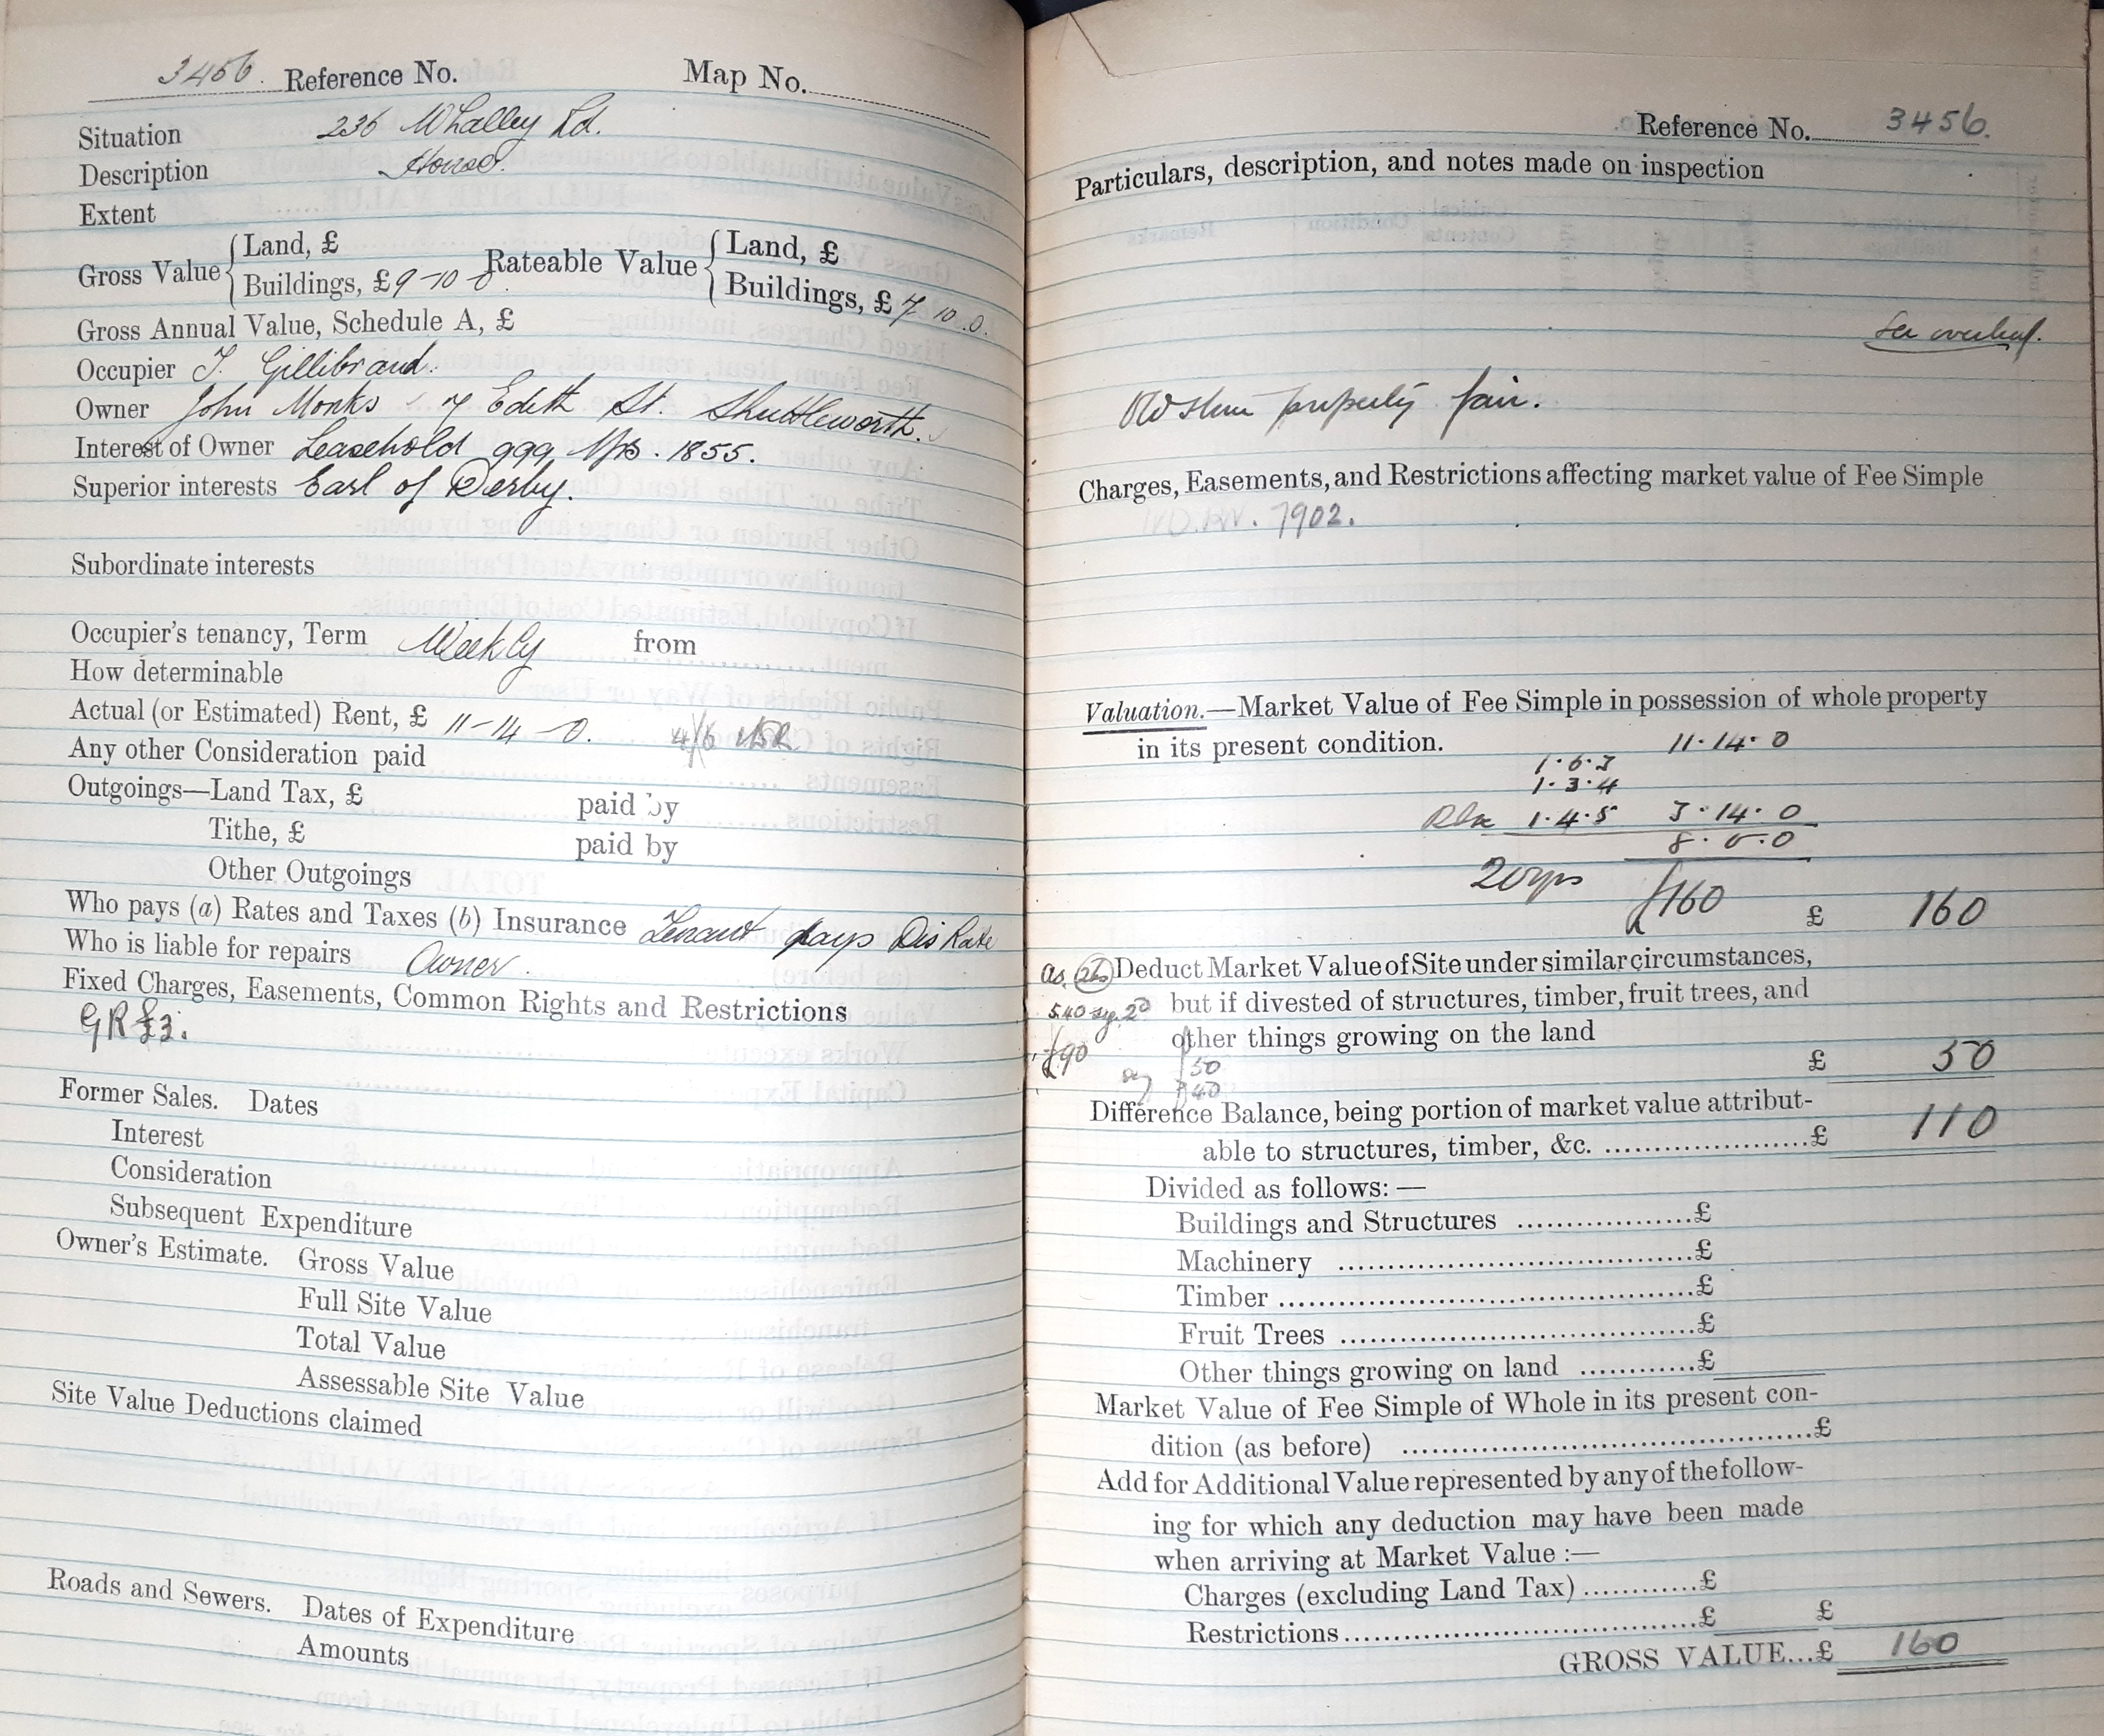 3456 Reference No. Map No.
Situation 236 Whalley Rd.
Description House.
Extent
Gross Value { Land, £ Rateable Value { Land, £
Buildings, £ 9-10-0 Buildings, £ 7.10.0.
Gross Annual Value, Schedule A, £
Occupier T. Gillibrand.
Owner John Monks, 7 Edith St. Shuttleworth.
Interest of Owner Leasehold 999 Yrs. 1855.
Superior interests Earl of Derby.
Subordinate interests
Occupier's tenancy, Term Weekly from
How determinable
Actual (or Estimated) Rent, £ 11-14-0. 4/6
Any other Consideration paid
Outgoings—Land Tax, £ paid by
Tithe, £ paid by
Other Outgoings
Who pays (a) Rates and Taxes (b) Insurance Tenant pays Dis Rate
Who is liable for repairs Owner.
Fixed Charges, Easements, Common Rights and Restrictions
GR £3.
Former Sales. Dates
Interest
Consideration
Subsequent Expenditure
Owner's Estimate. Gross Value
Full Site Value
Total Value
Assessable Site Value
Site Value Deductions claimed
Roads and Sewers. Dates of Expenditure
Amounts
Reference No. 3456.
Particulars, description, and notes made on inspection
See overleaf.
Old stone property fair.
Charges, Easements, and Restrictions affecting market value of Fee Simple
1902.
Valuation.—Market Value of Fee Simple in possession of whole property
in its present condition. 11.14.0
1.6.3
1.3.4
1.4.5 3.14.0
8.0.0
20 yrs £160 £ 160
as Deduct Market Value of Site under similar circumstances,
540 sy. but if divested of structures, timber, fruit trees, and
other things growing on the land
£90 50
say £ 50
40
Difference Balance, being portion of market value attribut-
able to structures, timber, &c. £ 110
Divided as follows:—
Buildings and Structures £
Machinery £
Timber £
Fruit Trees £
Other things growing on land £
Market Value of Fee Simple of Whole in its present con-
dition (as before) £
Add for Additional Value represented by any of the follow-
ing for which any deduction may have been made
when arriving at Market Value :—
Charges (excluding Land Tax) £
Restrictions £ £
GROSS VALUE...£ 160